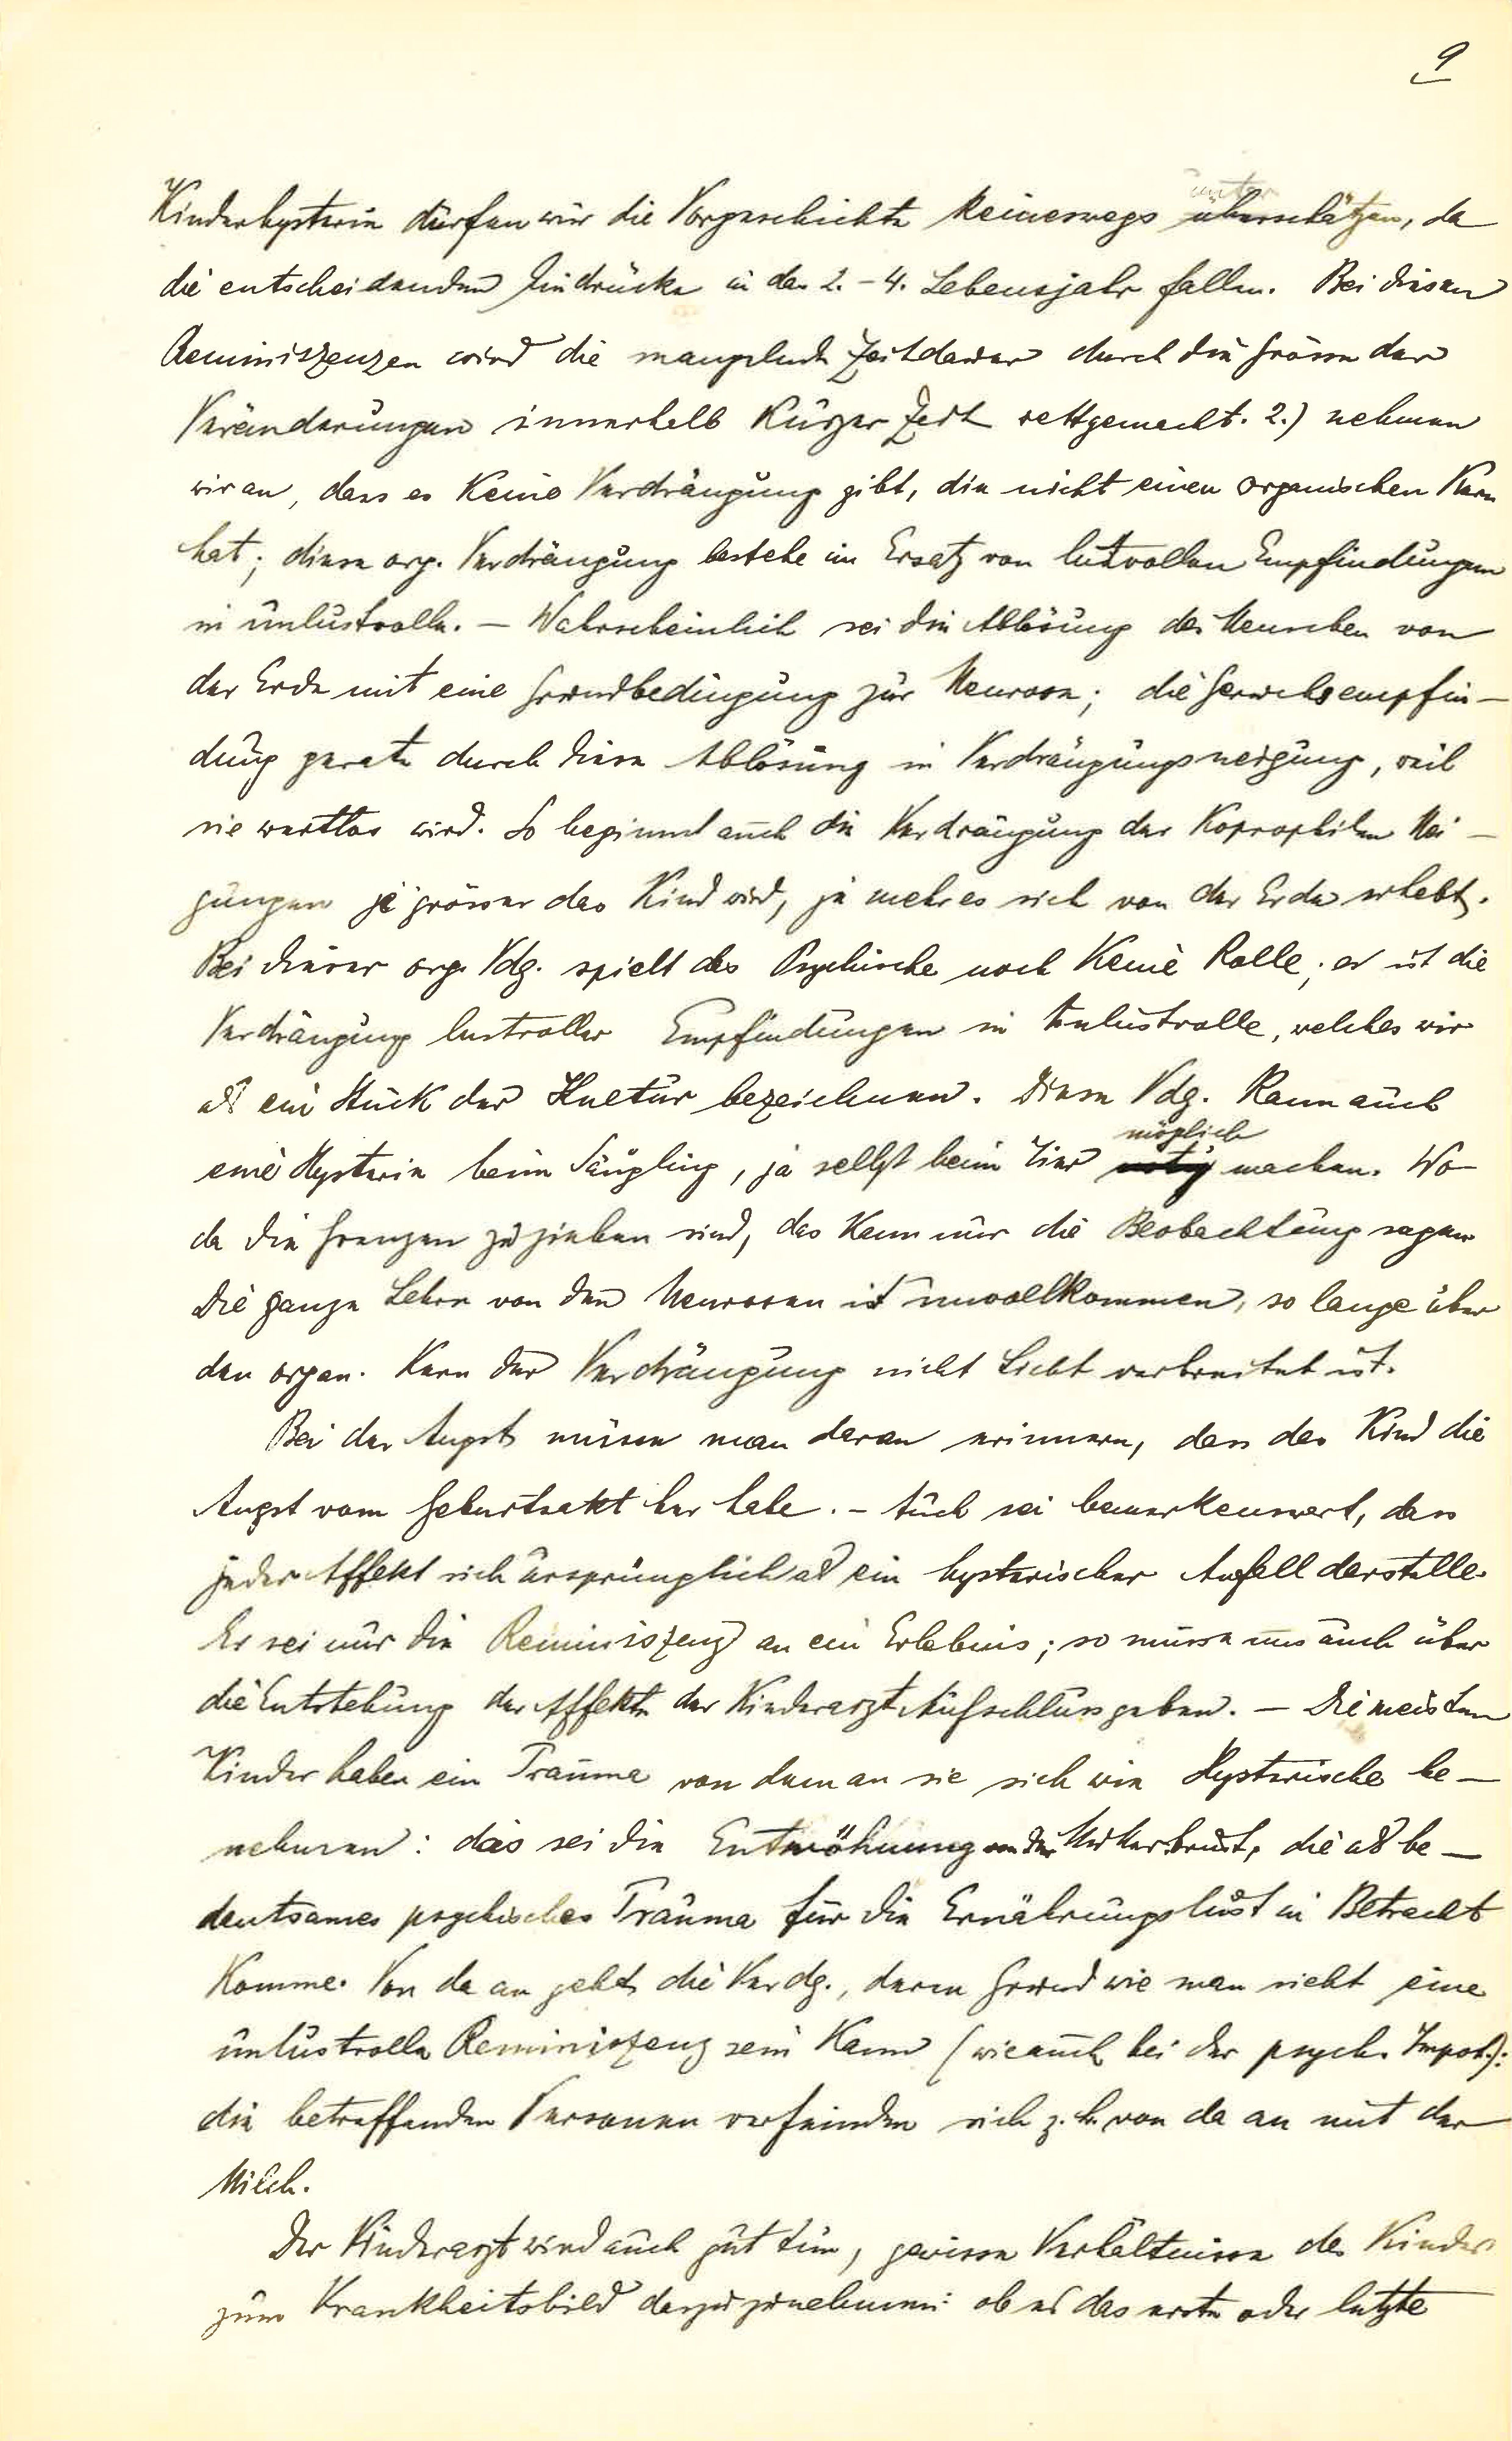 9
unter
Kinderhysterie dürfen wir die Vorgeschichte keineswegs überschätzen, da
die entscheidenden Eindrücke in das 2. – 4. Lebensjahr fallen. Bei diesen
Reminiszenzen wird die mangelnde Zeitdauer durch die Grösse der
Veränderungen innerhalb kurzer Zeit wettgemacht. 2.) nehmen
wir an, dass es keine Verdrängung gibt, die nicht einen organischen Kern
hat; diese org. Verdrängung bestehe im Ersatz von lustvollen Empfindungen
in unlustvolle. – Wahrscheinlich sei die Ablösung des Menschen von
der Erde mit eine Grundbedingung zur Neurose; die Geruchsempfin-
dung gerate durch diese Ablösung in Verdrängungsneigung, weil
sie wertlos wird. So beginnt auch die Verdrängung der Koprophilen Nei-
gungen je grösser das Kind wird, je mehr es sich von der Erde erhebt.
Bei dieser org. Vdg. spielt das Psychische noch keine Rolle; es ist die
Verdrängung lustvoller Empfindungen in unlustvolle, welches wir
als ein Stück der Kultur bezeichnen. Diese Vdg. kann auch
möglich
eine Hysterie beim Säugling, ja selbst beim Tier machen. Wo
da die Grenzen zu ziehen sind, das kann nur die Beobachtung sagen
Die ganze Lehre von den Neurosen ist unvollkommen, so lange über
den organ. Kern der Verdrängung nicht Licht verbreitet ist.
Bei der Angst müsse man daran erinnern, dass das Kind die
Angst vom Geburtsakt her habe. – Auch sei bemerkenswert, dass
jeder Affekt sich ursprünglich als ein hysterischer Anfall darstelle.
Er sei nur die Reminiszenz an ein Erlebnis; so müsse uns auch über
die Entstehung der Affekte der Kinderarzt Aufschluss geben. – Die meisten
Kinder haben ein Trauma von dem an sie sich wie Hysterische be-
nehmen: das sei die Entwöhnung von der Mutterbrust, die als be-
deutsames psychisches Trauma für die Ernährungslust in Betracht
komme. Von da an geht die Verdg., deren Grund wie man sieht eine
unlustvolle Reminiszenz sein kann (wie auch bei der psych. Impot.):
die betreffenden Personen verfeinden sich z. b. von da an mit der
Milch.
Der Kinderarzt wird auch gut tun, gewisse Verhältnisse des Kindes
zum Krankheitsbild dazuzunehmen: ob es das erste oder letzte